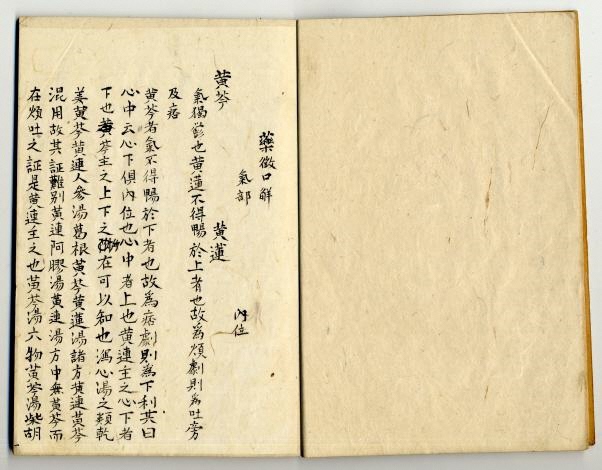 藥徵口解
氣部 內位
黃芩 黃連
氣獨欝也黃連不得暢於上者也故為煩劇則為吐旁
及痞
黃芩者氣不得暢於下者也故為痞劇則為下利其曰
心中云心下俱內位也心中者上也黃連主之心下者
下也黃芩主之上下之所在可以知也瀉心湯之類乾
姜黃芩黃連人參湯葛根黃芩黃連湯諸方黃連黃芩
混用故其証難別黃連阿膠湯黃連湯方中無黃芩而
在煩吐之証是黃連主之也黃芩湯六物黃芩湯柴胡